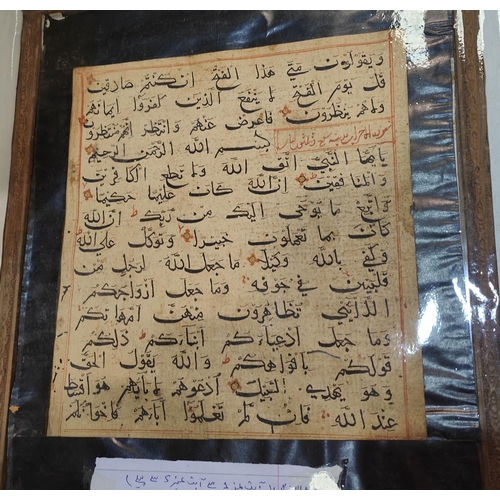 ويقولون متى هذا الفتح ان كنتم صادقين
قل يوم الفتح لا ينفع الذين كفروا ايمانهم
ولاهم ينظرون فاعرض عنهم وانتظر انهم منتظرون
بسم الله الرحمن الرحيم
يايها النبى اتق الله ولا تطع الكافرين
والمنافقين ان الله كان عليما حكيما
واتبع ما يوحى اليك من ربك ان الله
كان بما تعملون خبيرا وتوكل على الله
وكفى بالله وكيلا ما جعل الله لرجل من
قلبين فى جوفه وما جعل ازواجكم
اللائى تظاهرون منهن امهاتكم
وما جعل ادعياءكم ابناءكم ذلكم
قولكم بافواهكم والله يقول الحق
وهو يهدى السبيل ادعوهم لابائهم هو اقسط
عند الله فان لم تعلموا اباءهم فاخوانكم